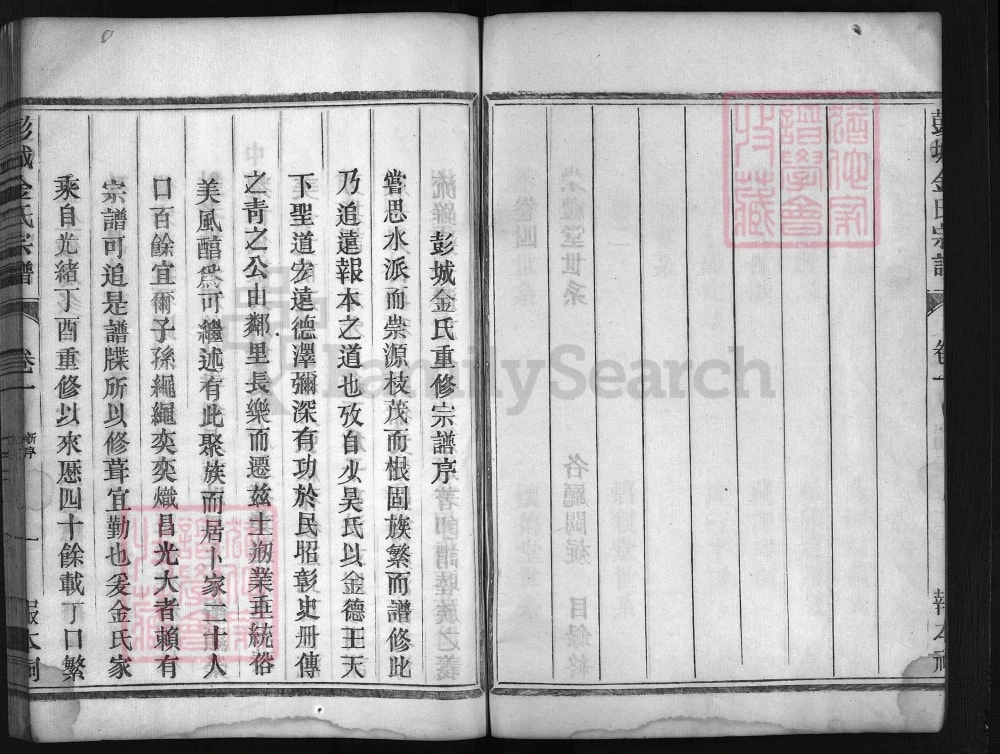 彭城金氏宗譜
卷一
報本祠
彭城金氏重修宗譜序
嘗思水派而崇源枝茂而根固族繁而譜修此
乃追遠報本之道也攷自少昊氏以金德王天
下聖道宏遠德澤彌深有功於民昭彰史冊傳
之靑之公由鄰里長樂而遷兹土刱業垂統裕
美風醇爲可繼述有此聚族而居卜家二十人
口百餘宜爾子孫繩繩奕奕熾昌光大者賴有
宗譜可追是譜牒所以修葺宜勤也爰金氏家
乘自光緒丁酉重修以來歷四十餘載丁口繁
彭城金氏宗譜
卷一
新序
一
報本祠
FamilySearch